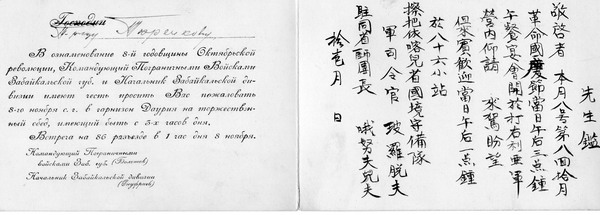 Господин
В ознаменование 8-ой годовщины Октябрьской
революции, Командующий Пограничными Войсками
Забайкальской губ. и Начальник Забайкальской ди-
визии имеют честь просить Вас пожаловать
8-го ноября с. г. в гарнизон Даурия на торжествен-
ный обед, имеющий быть с 3-х часов дня.
Встреча на 86 разъезде в 1 час дня 8 ноября.
Командующий Пограничными
войсками Заб. губ.
Начальник Забайкальской дивизии
(Онуфриев)
先生鑑
敬啓者 本月八号第八四拾月
革命國慶節當日午后三点鐘
午餐宴會開於打右利亜軍
營内仰請 來駕盼望
但來賓歡迎當日午后一点鐘
於八十六小站
擦把依喀兒省國境守備隊
軍司令官 玻羅脱夫
駐同省師團長 哦努夫兒夫
拾壱月 日